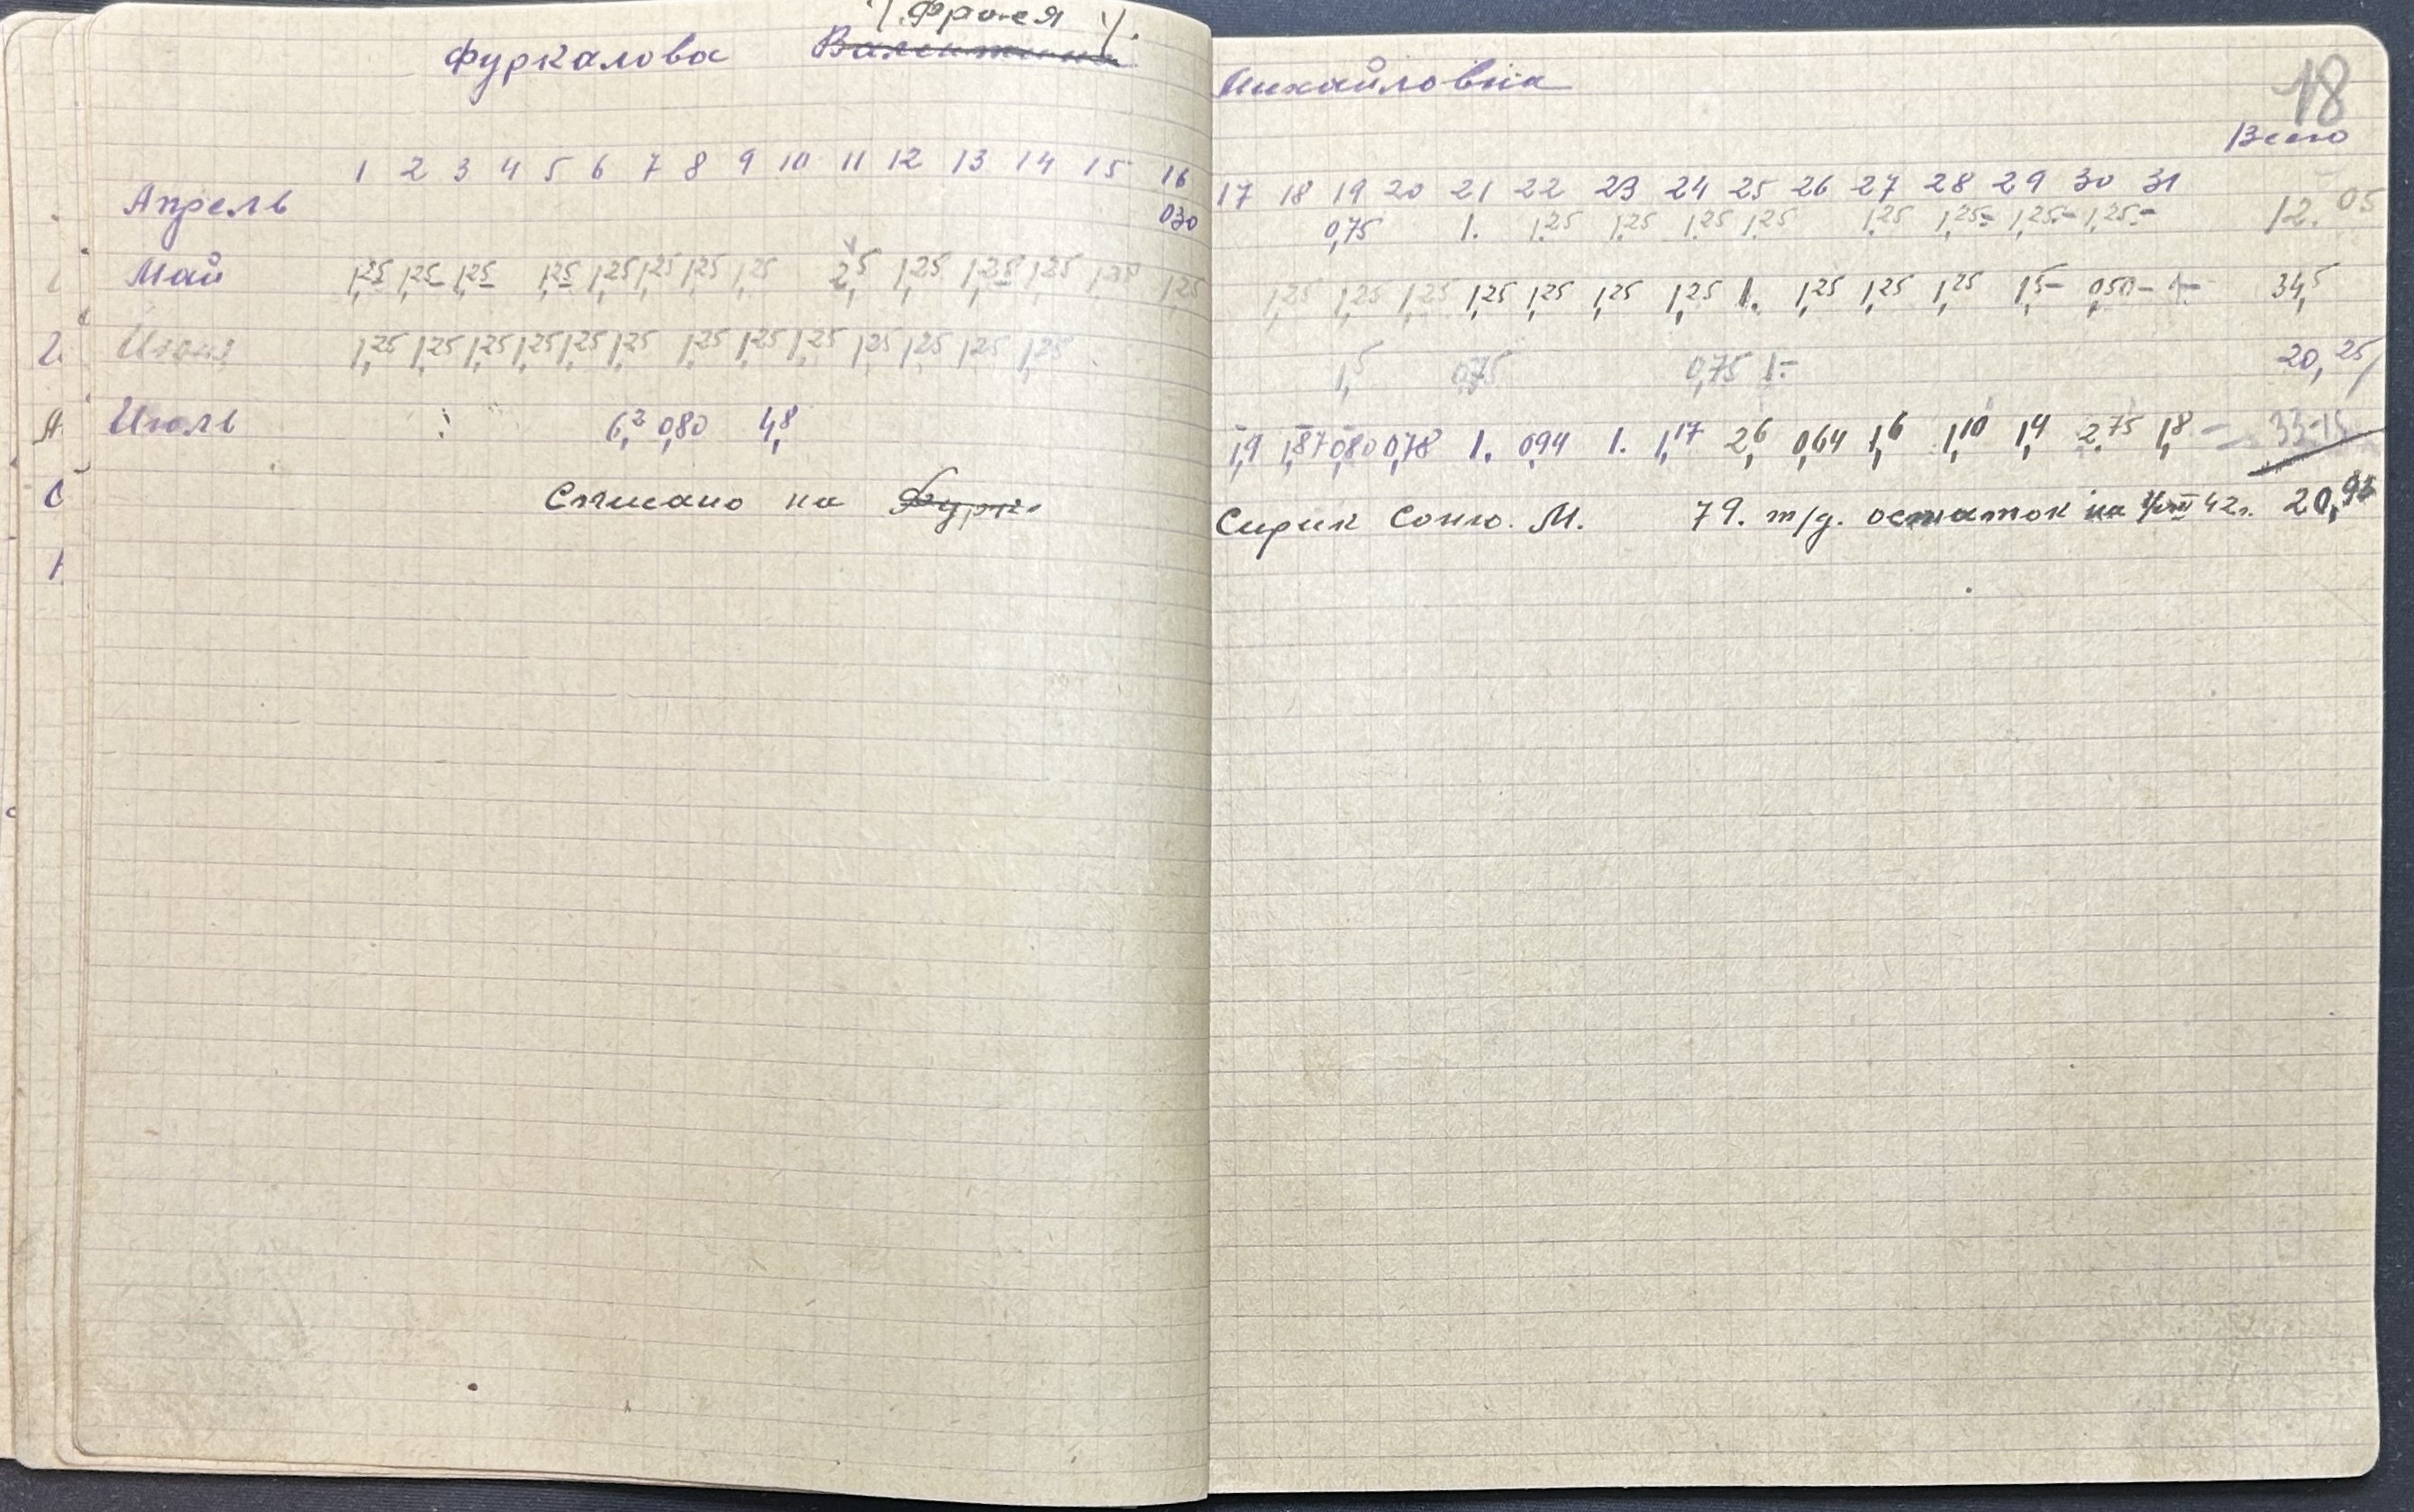 /. Фрося /.
Фуркалова ~~Валентина~~ Михайловна
18
Всего
1 2 3 4 5 6 7 8 9 10 11 12 13 14 15 16 17 18 19 20 21 22 23 24 25 26 27 28 29 30 31
Апрель 030 0,75 1. 1.25 1.25 1.25 1.25 1.25 1,25- 1,25- 1,25- 12.05
Май 1,25 1,25 1,25 1,25 1,25 1,25 1,25 1,25 2,5 1,25 1,25 1,25 1,25 1,25 1,25 1,25 1,25 1,25 1,25 1,25 1,25 1. 1,25 1,25 1,25 1,5- 0,50- 1- 34,5
Июнь 1,25 1,25 1,25 1,25 1,25 1,25 1,25 1,25 1,25 1,25 1,25 1,25 1,25 1,5 0,75 0,75 1.- 20,25
Июль 6,2 0,80 4,8 1,9 1,87 0,80 0,78 1. 0,94 1. 1,17 2,6 0,64 1,6 1,10 1,4 2,75 1,8 - 33-15
Списано на ~~Фурк.~~ Сирик Соню. М. 79. т/д. остаток на 42г. 20,95